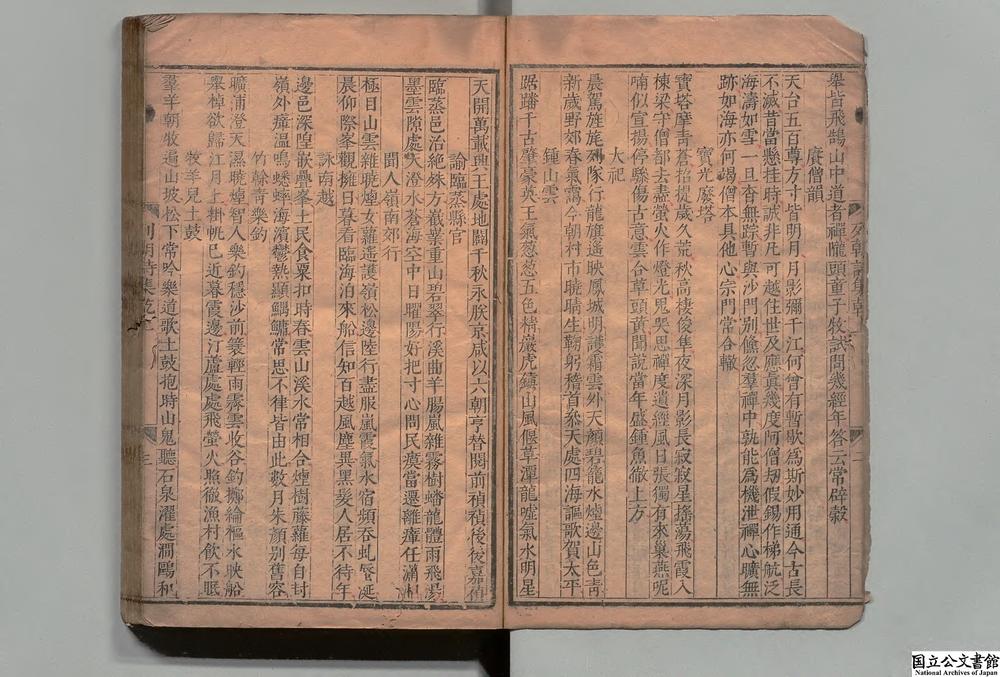 舉皆飛鵠山中道者禪龍頭童子牧試問幾經年答云常辟穀
賡僧韻
天台五百尊方寸皆明月月影彌千江何曾有暫歇為斯妙用通今古長
不滅昔當懸挂時誠非凡可越住世及應真幾度阿僧劫假錫作梯航泛
海濤如雪一旦杳無踪暫與沙門別倐忽羣禪中孰能為機泄禪心曠無
跡如海亦何竭僧本具他心宗門常合轍
寶光廢塔
寶塔摩青蒼招提歲久荒秋高棲俊隼夜深月影長寂寂星搖蕩飛霞入
棟梁守僧都去盡螢火作燈光鬼哭思禪度遺經風日張獨有來巢燕呢
喃似宣揚停驂傷古意雲合草頭黃聞說當年盛鍾魚徹上方
大祀
晨駕旌旄列隊行龍旂遙映鳳城明護霜雲外天顏碧籠水煙邊山色青
新歲野郊春氣靄今朝村市曉晴生鞠躬稽首忝天處四海謳歌賀太平
鍾山雲
踞蹯千古肇豪英王氣葱葱五色精巖虎鎮山風偃草潭龍噓氣水明星
天開萬載興王處地闢千秋永朕京咸以六朝亨替閱前禎禎後後嘉禎
諭臨蒸縣官
臨蒸邑治絶殊方巀嶪重山碧翠行溪曲羊腸嵐雜霧樹蟠龍體雨飛
墨雲隙處天澄水蒼海空中日曜陽好把寸心問民瘼當還離瘴任滿
聞人嶺南郊行
極目山雲雜曉煙女蘿遙護嶺松邊陸行盡服嵐霞氣水宿頻吞虬蜃涎
晨仰際峯觀擁日暮看臨海泊來船信知百越風塵異黑髮人居不待年
詠南越
邊邑深隍嵌疊峯土民食粟扣時舂雲山溪水常相合煙樹藤蘿每自封
嶺外瘴温鳴蟋蟀海濱鬱熱顯鰅鱅常思不律皆由此數月朱顏別舊容
竹榦青樂釣
曠浦澄天濕曉煙智人樂釣穩沙前簑輕雨霽雲收谷釣擲綸樞水映船
舉棹欲歸江月上掛帆巳近暮霞邊汀蘆處處飛螢火照徹漁村飲不眠
牧羊兒土鼓
羣羊朝牧遍山坡松下常吟樂道歌土鼓抱時山鬼聽石泉濯處澗鷗和
列朝詩集乾
國立公文書館
National Archives of Japan